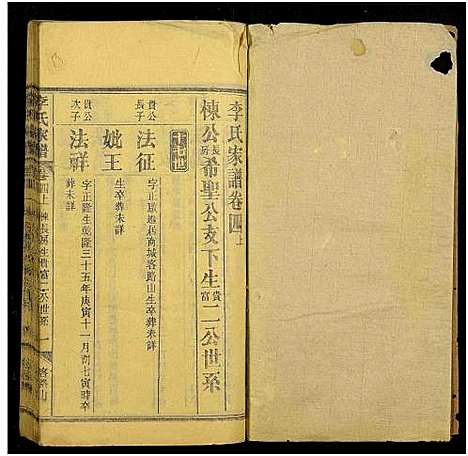 李氏家譜卷四上
棟公長房希聖公支下生貴富二公世系
貴公長子
法征
字正啟遷居商城客路山生卒葬未詳
妣王
生卒葬未詳
貴公次子
法祥
字正隆生乾隆三十五年庚寅十一月初七寅時卒
葬未詳
李氏家譜
卷四上
棟長房生貴富二公世系
一